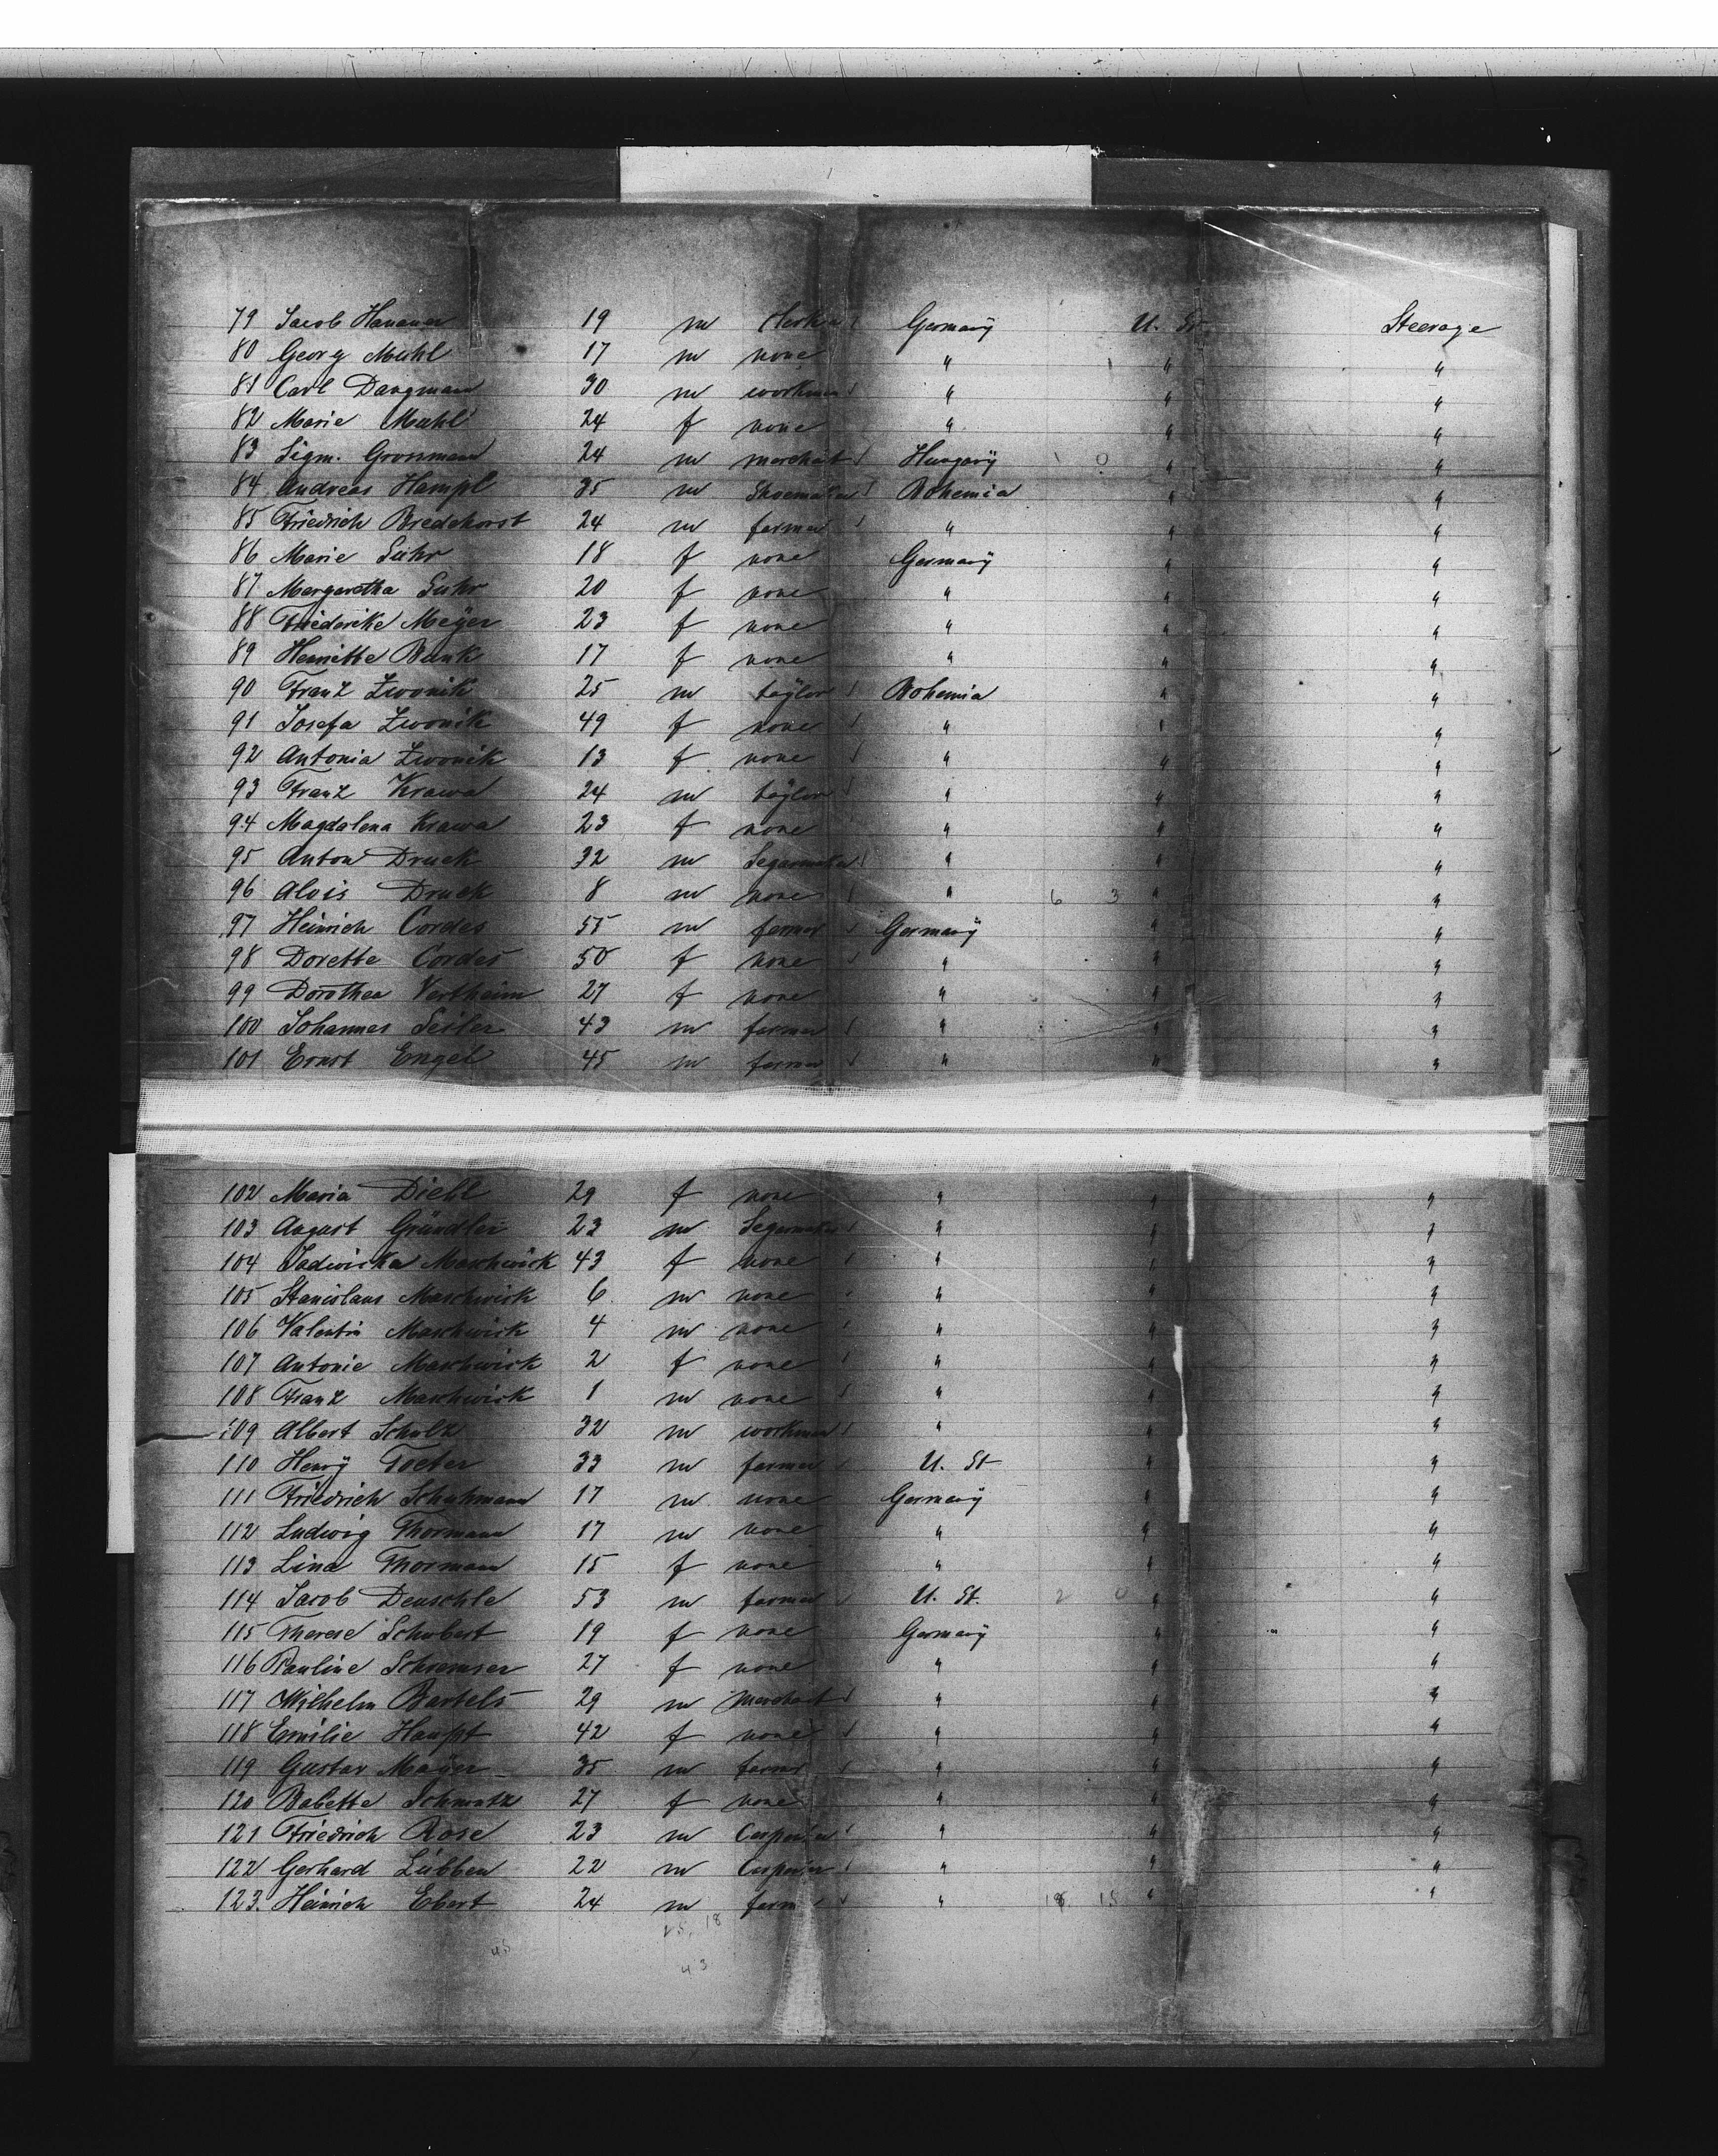 79 Jacob Hanauer 19 m Germany U. St. Steerage
80 Georg Muhl 17 m none " " "
81 Carl Dangmann 30 m workman " " "
82 Marie Muhl 24 f none " " "
83 Sigm. Grossmann 24 m merchat Hungary 1 0 " "
84 Andreas Hampl 35 m Shoemaker Bohemia " "
85 Friedrich Bredehorst 24 m farmer " " "
86 Marie Suhr 18 f none Germany " "
87 Margaretha Suhr 20 f none " " "
88 Friederike Meÿer 23 f none " " "
89 Henriette Bank 17 f none " " "
90 Franz Zwonik 25 m taÿlor Bohemia " "
91 Josefa Zwonik 49 f none " " "
92 Antonia Zwonik 13 f none " " "
93 Franz Krawa 24 m taÿlor " " "
94 Magdalena Krawa 23 f none " " "
95 Anton Druck 32 m Segarmaker " " "
96 Alois Druck 8 m none " 6 3 " "
97 Heinrich Cordes 55 m farmer Germany " "
98 Dorette Cordes 50 f none " " "
99 Dorothea Vertheim 27 f none " " "
100 Johannes Seiler 43 m farmer " " "
101 Ernst Engel 45 m farmer " " "
102 Maria Diehl 29 f none " " "
103 August Gründler 23 m Segarmaker " " "
104 Jadwiska Maschwick 43 f none " " "
105 Stanislaus Maschwick 6 m none " " "
106 Valentin Maschwick 4 m none " " "
107 Antonie Maschwick 2 f none " " "
108 Franz Maschwick 1 m none " " "
109 Albert Schulz 32 m workman " " "
110 Henrÿ Toeter 33 m farmer U. St " "
111 Friedrich Schuhmann 17 m none Germany " "
112 Ludwig Thormann 17 m none " " "
113 Lina Thormann 15 f none " " "
114 Jacob Deuschle 53 m farmer U. St. 2 0 " "
115 Therese Schubert 19 f none Germany " "
116 Pauline Schremser 27 f none " " "
117 Wilhelm Bartels 29 m merchant " " "
118 Emilie Haupt 42 f none " " "
119 Gustav Maÿer 35 m farmer " " "
120 Babette Schmutz 27 f none " " "
121 Friedrich Rose 23 m Carpenter " " "
122 Gerhard Lübben 22 m Carpenter " " "
123. Heinrich Ebert 24 m farm " 18 15 " "
25, 18
45
43